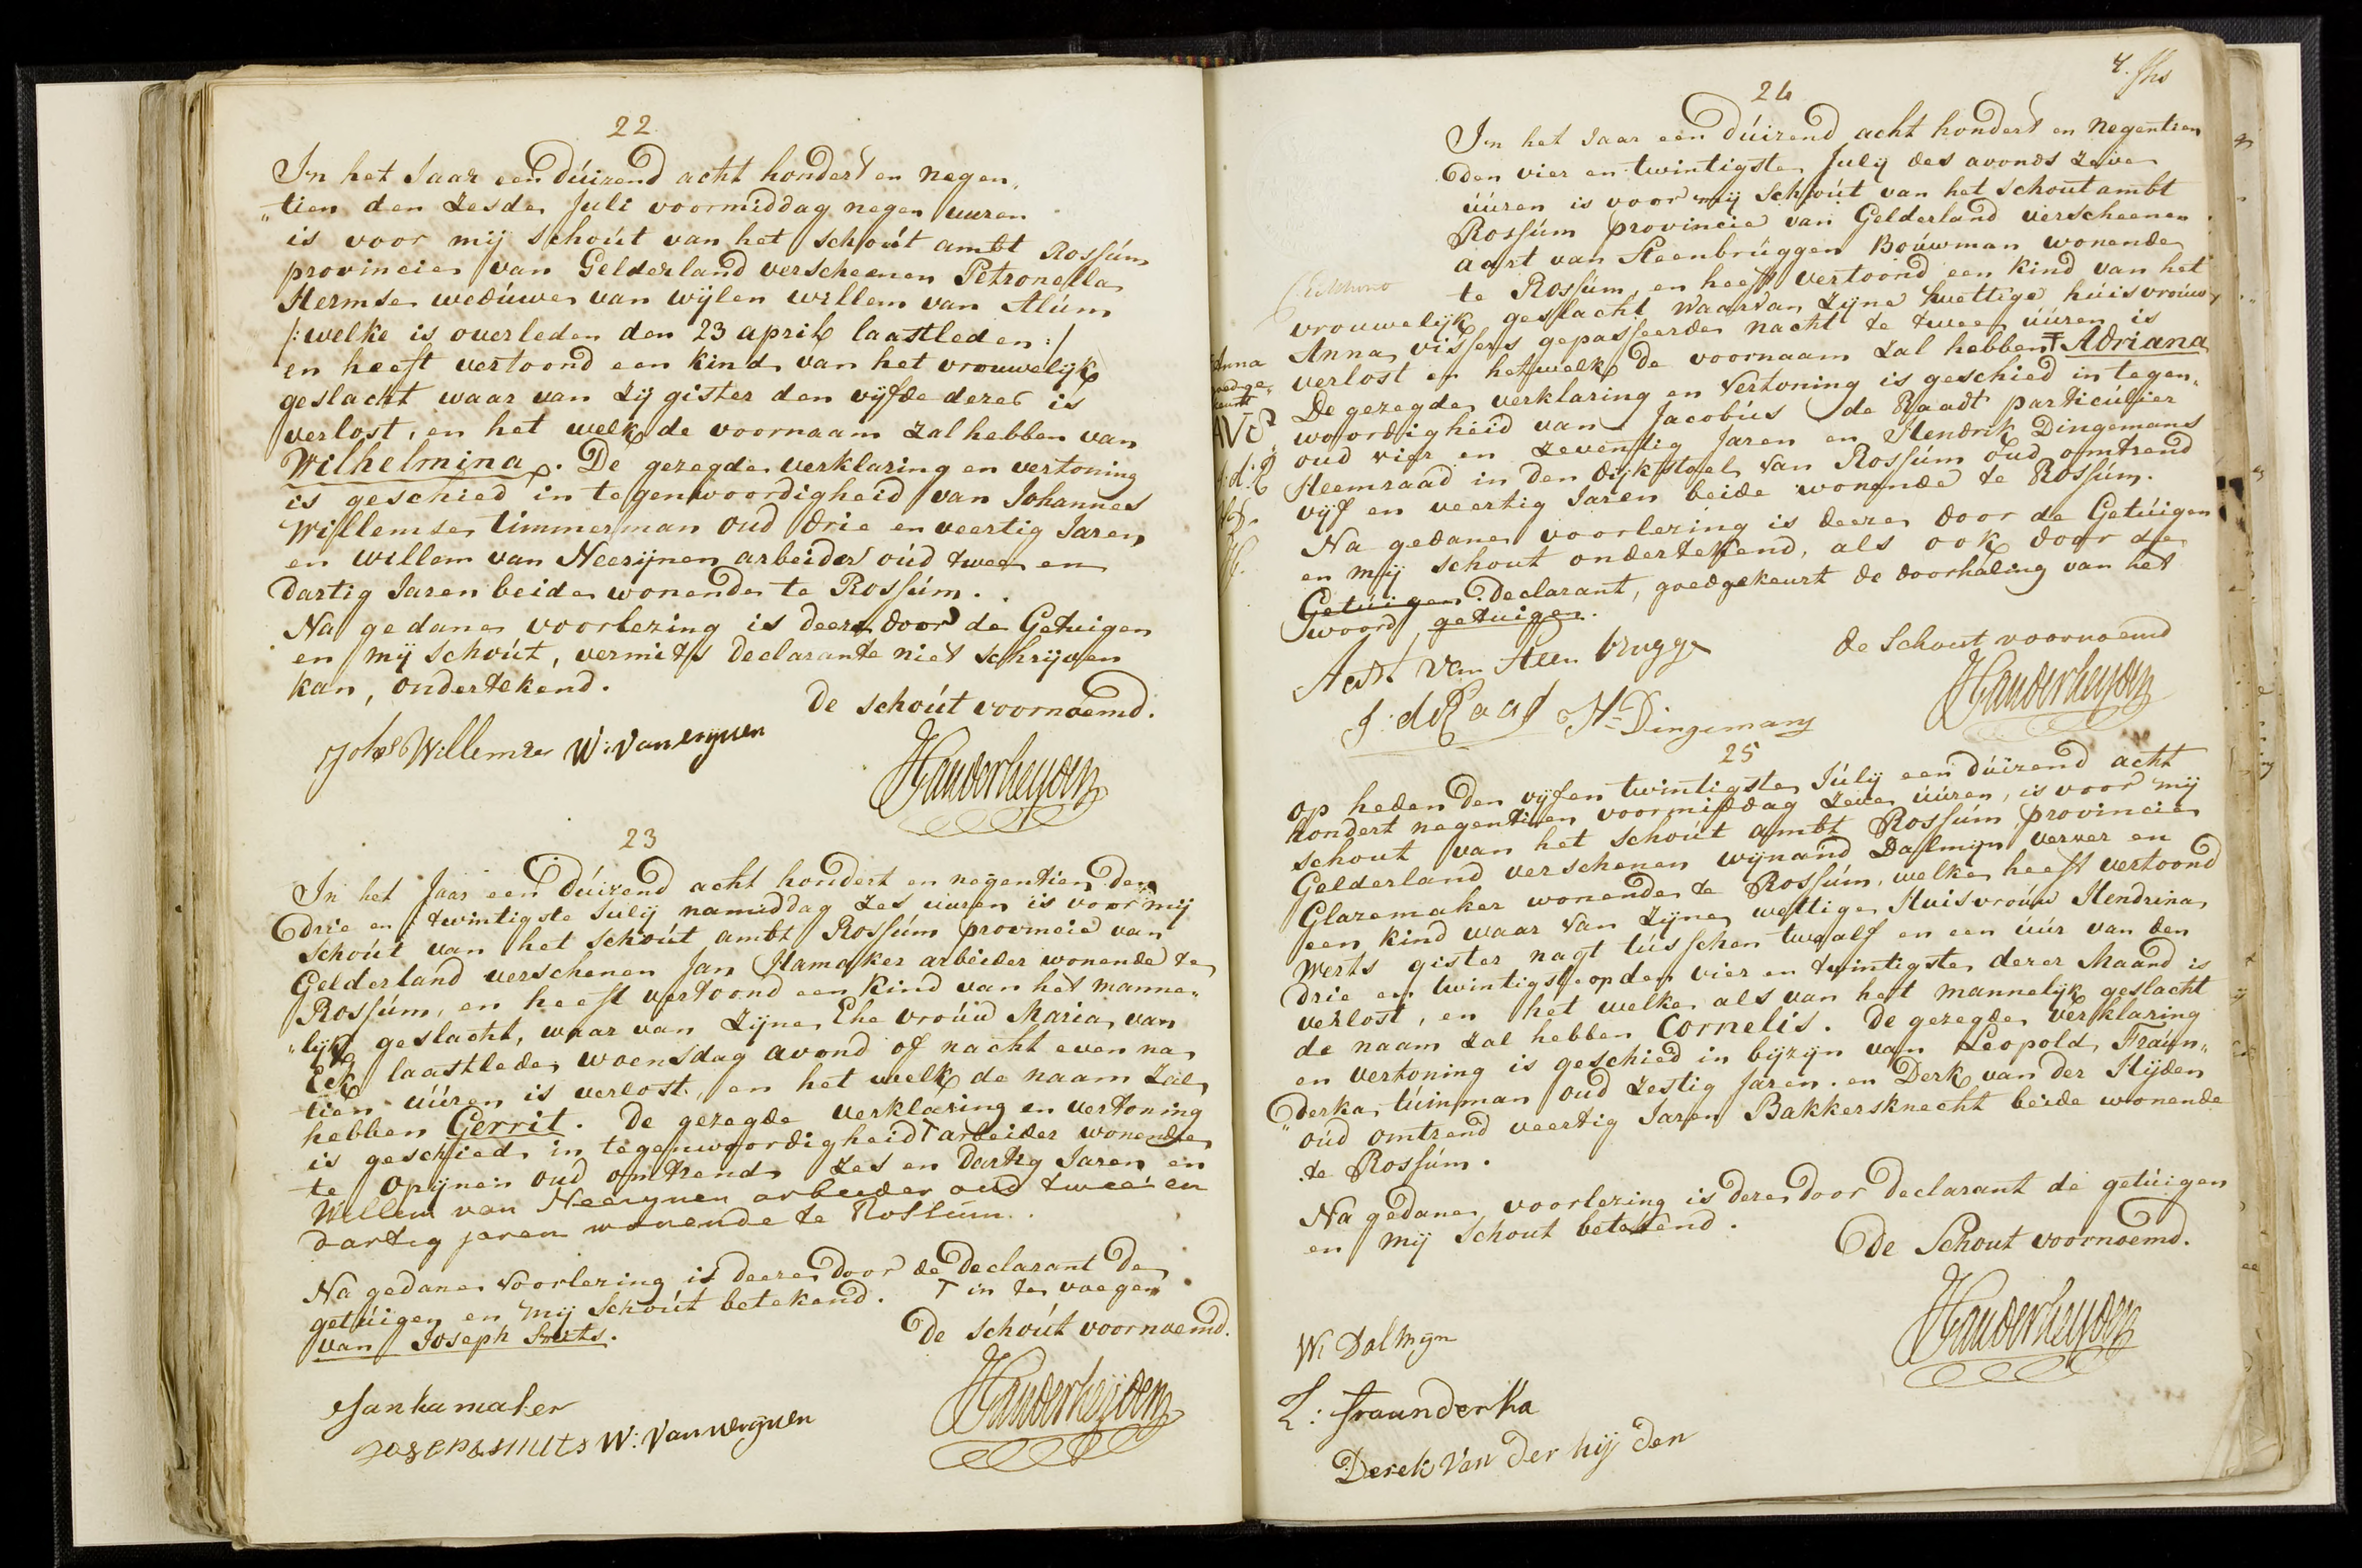 22
In het Jaar een dúizend acht hondert en negen„
„tien den zesde Juli voormiddag negen uuren
is voor mij schoút van het schoút ambt Rossúm
provincie van Gelderland verscheenen Petronella
Hermse wedúwe van wijlen willem van Alúm
/:welke is overleden den 23 april laastleden:/
en heeft vertoond een kind van het vrouwelijk
geslacht waar van zij gister den vijfde dezer is
verlost, en het welk de voornaam zal hebben van
Wilhelmina. De gezegde verklaring en vertoning
is geschied in tegenwoordigheid van Johannes
Willemse timmerman oud drie en veertig Jaren
en willem van Neerijnen arbeider oúd twee en
dartig Jaren beide wonende te Rossúm.
Na gedane voorlezing is deeze door de Getuigen
en mij schoút, vermits declarante niet schrijven
kan, ondertekend.
de schoút voornoemd.
Johs Willemse W: Van erijnen
HVanderheyden
23
In het Jaar een dúizend acht hondert en negentien den
drie en twintigste Julij namiddag zes uuren is voor mij
Schoút van het schoút ambt Rossúm provincie van
Gelderland verschenen Jan Hamaker arbeider wonende te
Rossúm, en heeft vertoond een kind van het manne„
„lijk geslacht, waar van zijne Ehe vroúw Maria van
Eck laastlede woensdag avond of nacht even na
tien úúren is verlost, en het welk de naam zal
hebben Gerrit. De gezegde verklaring en vertoning
is geschied in tegenwoordigheid T arbeider wonende
te Opijnen oud omtrend zes en dartig Jaren en
Willem van Neerijnen arbeider oud twee en
dartig jaren wonende te Rossum.
Na gedane voorlezing is deeze door de declarant de
getúigen en mij Schoút betekend. T in te voegen
van Joseph Smits.
De schoút voornoemd.
Jan hamaker
Joseph smits W: Van nerijnen
HVanderheyden
24
In het Jaar een dúizend acht hondert en negentien
den vier en twintigste Julij des avonds zeve
úúren is voor mij Schoút van het schoutambt
Rossúm provincie van Gelderland verscheenen
aart van Steenbrúggen Boúwman wonende
te Rossúm, en heeft vertoond een kind van het
vrouwelijk geslacht waarvan zijne wettige húisvroúw
Anna vissers gepasseerde nacht te twee úúren is
verlost en hetwelk de voornaam zal hebben T Adriana
De gezegde verklaring en Vertoning is geschied in tegen„
woordigheid van Jacobús de Raadt particúlier
oud vier en zeventig Jaren en Hendrik Dingemans
Heemraad in den dijkstoel van Rossúm oud omtrend
vijf en veertig Jaren beide wonende te Rossúm.
Na gedane voorlezing is deeze door de Getúigen
en mij schout ondertekend, als ook door de
Getúigen declarant, goedgekeurt de doorhaling van het
woord getuigen.
T Anna
goedge„
keurt
AVS
J:d:R
HD.
H.
de Schout voornoemd
Aart Van Steen brugge
J: de Raat H. Dingemans
HVanderheyden
25
Op heden den vijfen twintigste Júlij een dúizend acht
hondert negentien voormiddag zeve úúren, is voor mij
schout van het schoút ambt Rossúm provincie
Gelderland verschenen wijnand Dalmijn verver en
Glazemaker wonende te Rossúm, welke heeft vertoond
een kind waar Van zijne wettige Huisvroúw Hendrina
Werts gister nagt tússchen twaalf en een úúr van den
drie en twintigste op den vier en twintigste dezer Maand is
verlost, en het welke als van het mannelijk geslacht
de naam zal hebben Cornelis. De gezegde verklaring
en vertoning is geschied in bijzijn van Leopold Fraún„
derka túinman oúd zestig Jaren en Derk van der Hijden
oúd omtrend veertig Jaren Bakkersknecht beide wonende
te Rossúm.
Na gedane voorlezing is deze door declarant de getúigen
en mij Schout betekend.
De Schout voornoemd.
W. Dalmijn
HVanderheyden
L: fraunderka
Derek Van der hij den